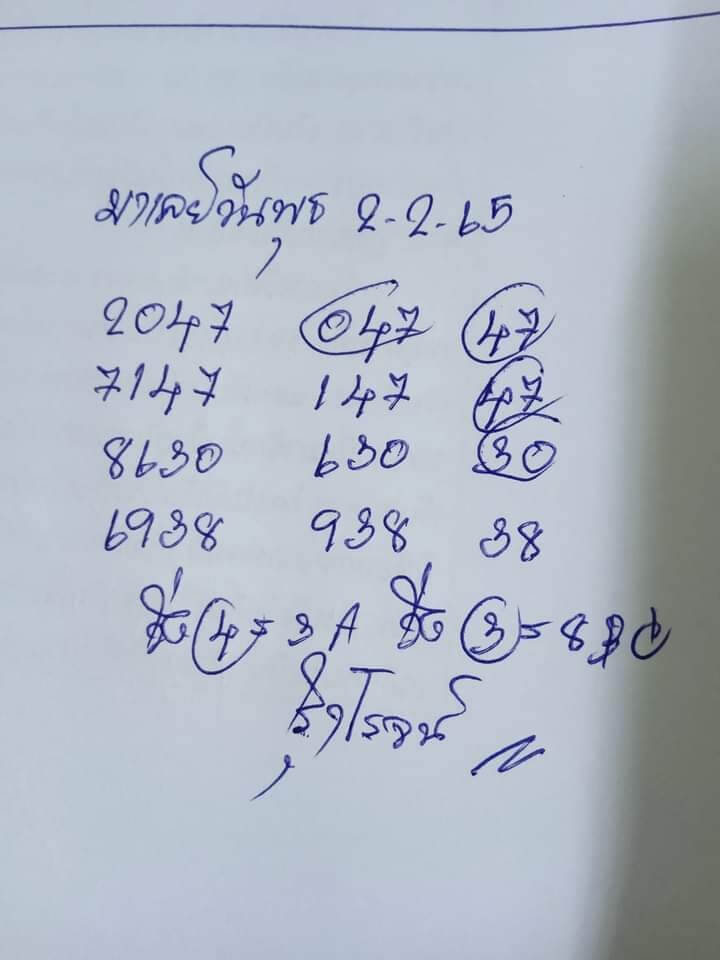 มาเลย์วันพุธ 2-2-65
2047 047 47
7147 147 47
8630 630 30
6938 938 38
4=3A 3=8